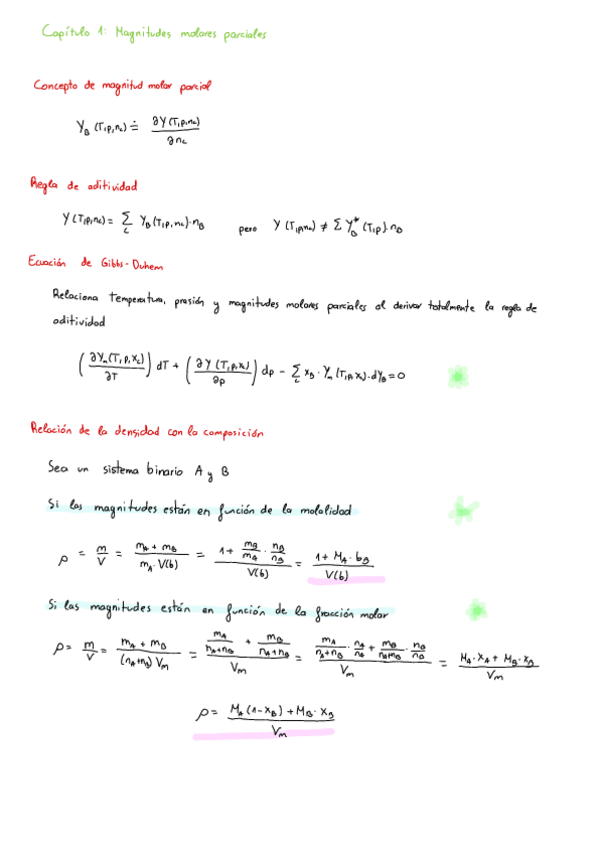 Capítulo 1: Magnitudes molares parciales
Concepto de magnitud molar parcial
Y_B (T,p,n_c) ≐ ∂Y(T,p,n_c) / ∂n_c
Regla de aditividad
Y(T,p,n_c) = Σ_c Y_B(T,p,n_c)·n_B pero Y(T,p,n_c) ≠ Σ Y*_B (T,p)·n_B
Ecuación de Gibbs-Duhem
Relaciona temperatura, presión y magnitudes molares parciales al derivar totalmente la regla de
aditividad
(∂Y_m(T,p,x_c) / ∂T) dT + (∂Y(T,p,x_c) / ∂p) dp − Σ_c x_B · Y_m (T,p,x_c)·dY_B = 0
Relación de la densidad con la composición
Sea un sistema binario A y B
Si las magnitudes están en función de la molalidad
ρ = m/V = (m_A + m_B) / (m_A · V(b)) = (1 + m_B/m_A · n_B/n_B) / V(b) = (1 + M_B · b_B) / V(b)
Si las magnitudes están en función de la fracción molar
ρ = m/V = (m_A + m_B) / ((n_A+n_B) V_m) = (m_A/(n_A+n_B) + m_B/(n_A+n_B)) / V_m = (m_A/(n_A+n_B) · n_A/n_A + m_B/(n_A+n_B) · n_B/n_B) / V_m = (M_A · x_A + M_B · x_B) / V_m
ρ = (M_A (1−x_B) + M_B · x_B) / V_m